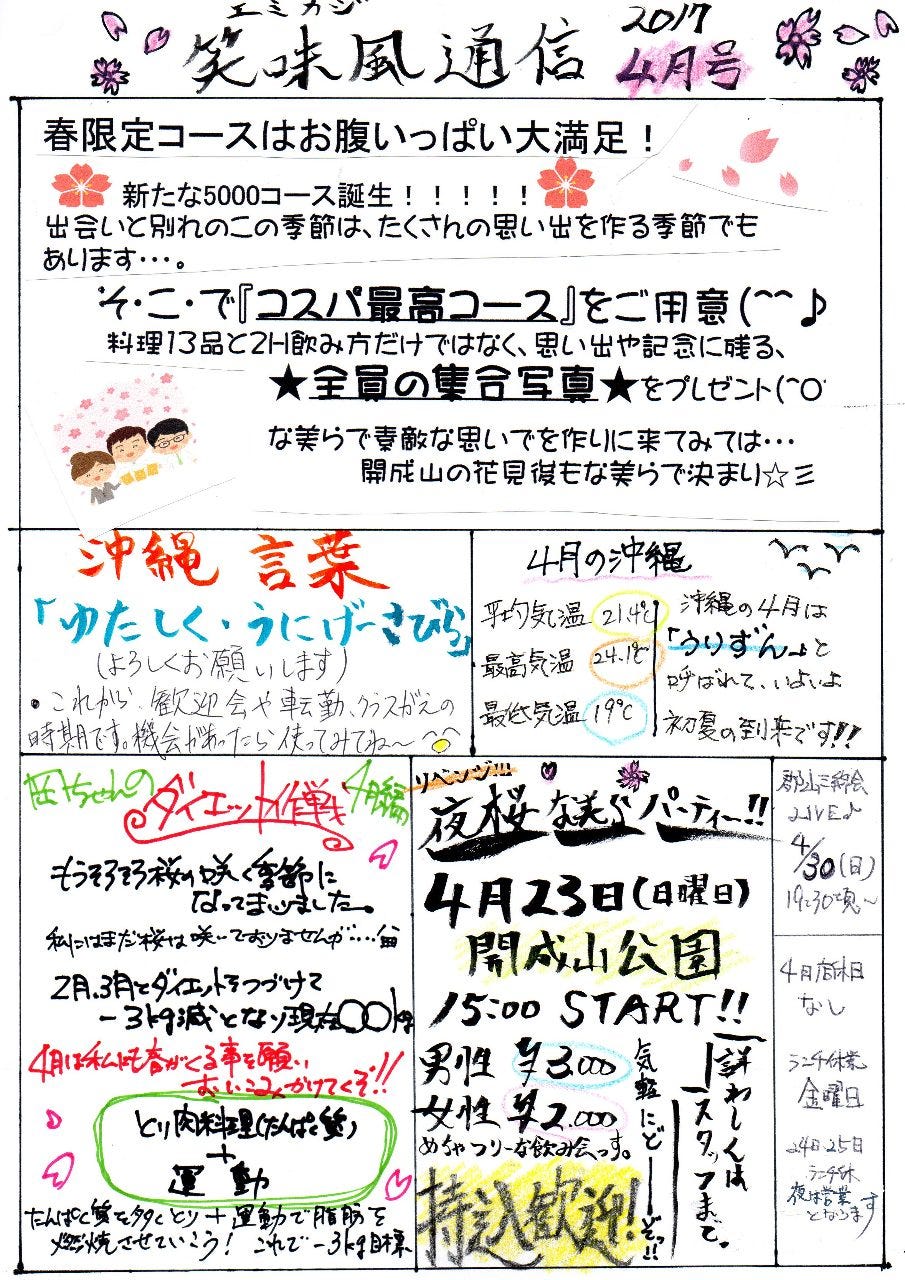 エミカジ
笑味風通信
2017
4月号
春限定コースはお腹いっぱい大満足！
新たな5000コース誕生！！！！！
出会いと別れのこの季節は、たくさんの思い出を作る季節でも
あります・・・。
そ・こ・で『コスパ最高コース』をご用意(^^♪
料理13品と2H飲み方だけではなく、思い出や記念に残る、
★全員の集合写真★をプレゼント(^O
な美らで素敵な思いでを作りに来てみては・・・
開成山の花見後もな美らで決まり☆彡
沖縄 言葉
「ゆたしく・うにげーさびら」
(よろしくお願いします)
・これから、歓迎会や転勤、クラスがえの
時期です。機会があったら使ってみてね〜
4月の沖縄
平均気温 21.4℃
最高気温 24.1℃
最低気温 19℃
沖縄の4月は
「うりずん」と
呼ばれて、いよいよ
初夏の到来です!!
ちゃんの
ダイエット作戦
4月編
もうそろそろ桜の咲く季節に
なってまいりました。
私にはまだ桜は咲いておりませんが….
2月、3月とダイエットをつづけて
−3kg減となり現在〇〇kg
4月は私にも春がくる事を願い
おいこみかけてくぞ!!
とり肉料理(たんぱく質)
+
運動
たんぱく質を多くとり+運動で脂肪を
燃焼させていこう! これで−3kg目標
リベンジ!!!
夜桜な美らパーティー!!
4月23日(日曜日)
開成山公園
15:00 START!!
男性 ¥3.000
女性 ¥2.000
めちゃフリーな飲み会っす。
持込歓迎!
気軽にどーーぞっ!!
詳わしくは
スタッフまで。
郡山三線会
LIVE♪
4/30(日)
19:30頃〜
4月店休日
なし
ランチ休業
金曜日
24日、25日
ランチ休
夜は営業
となります